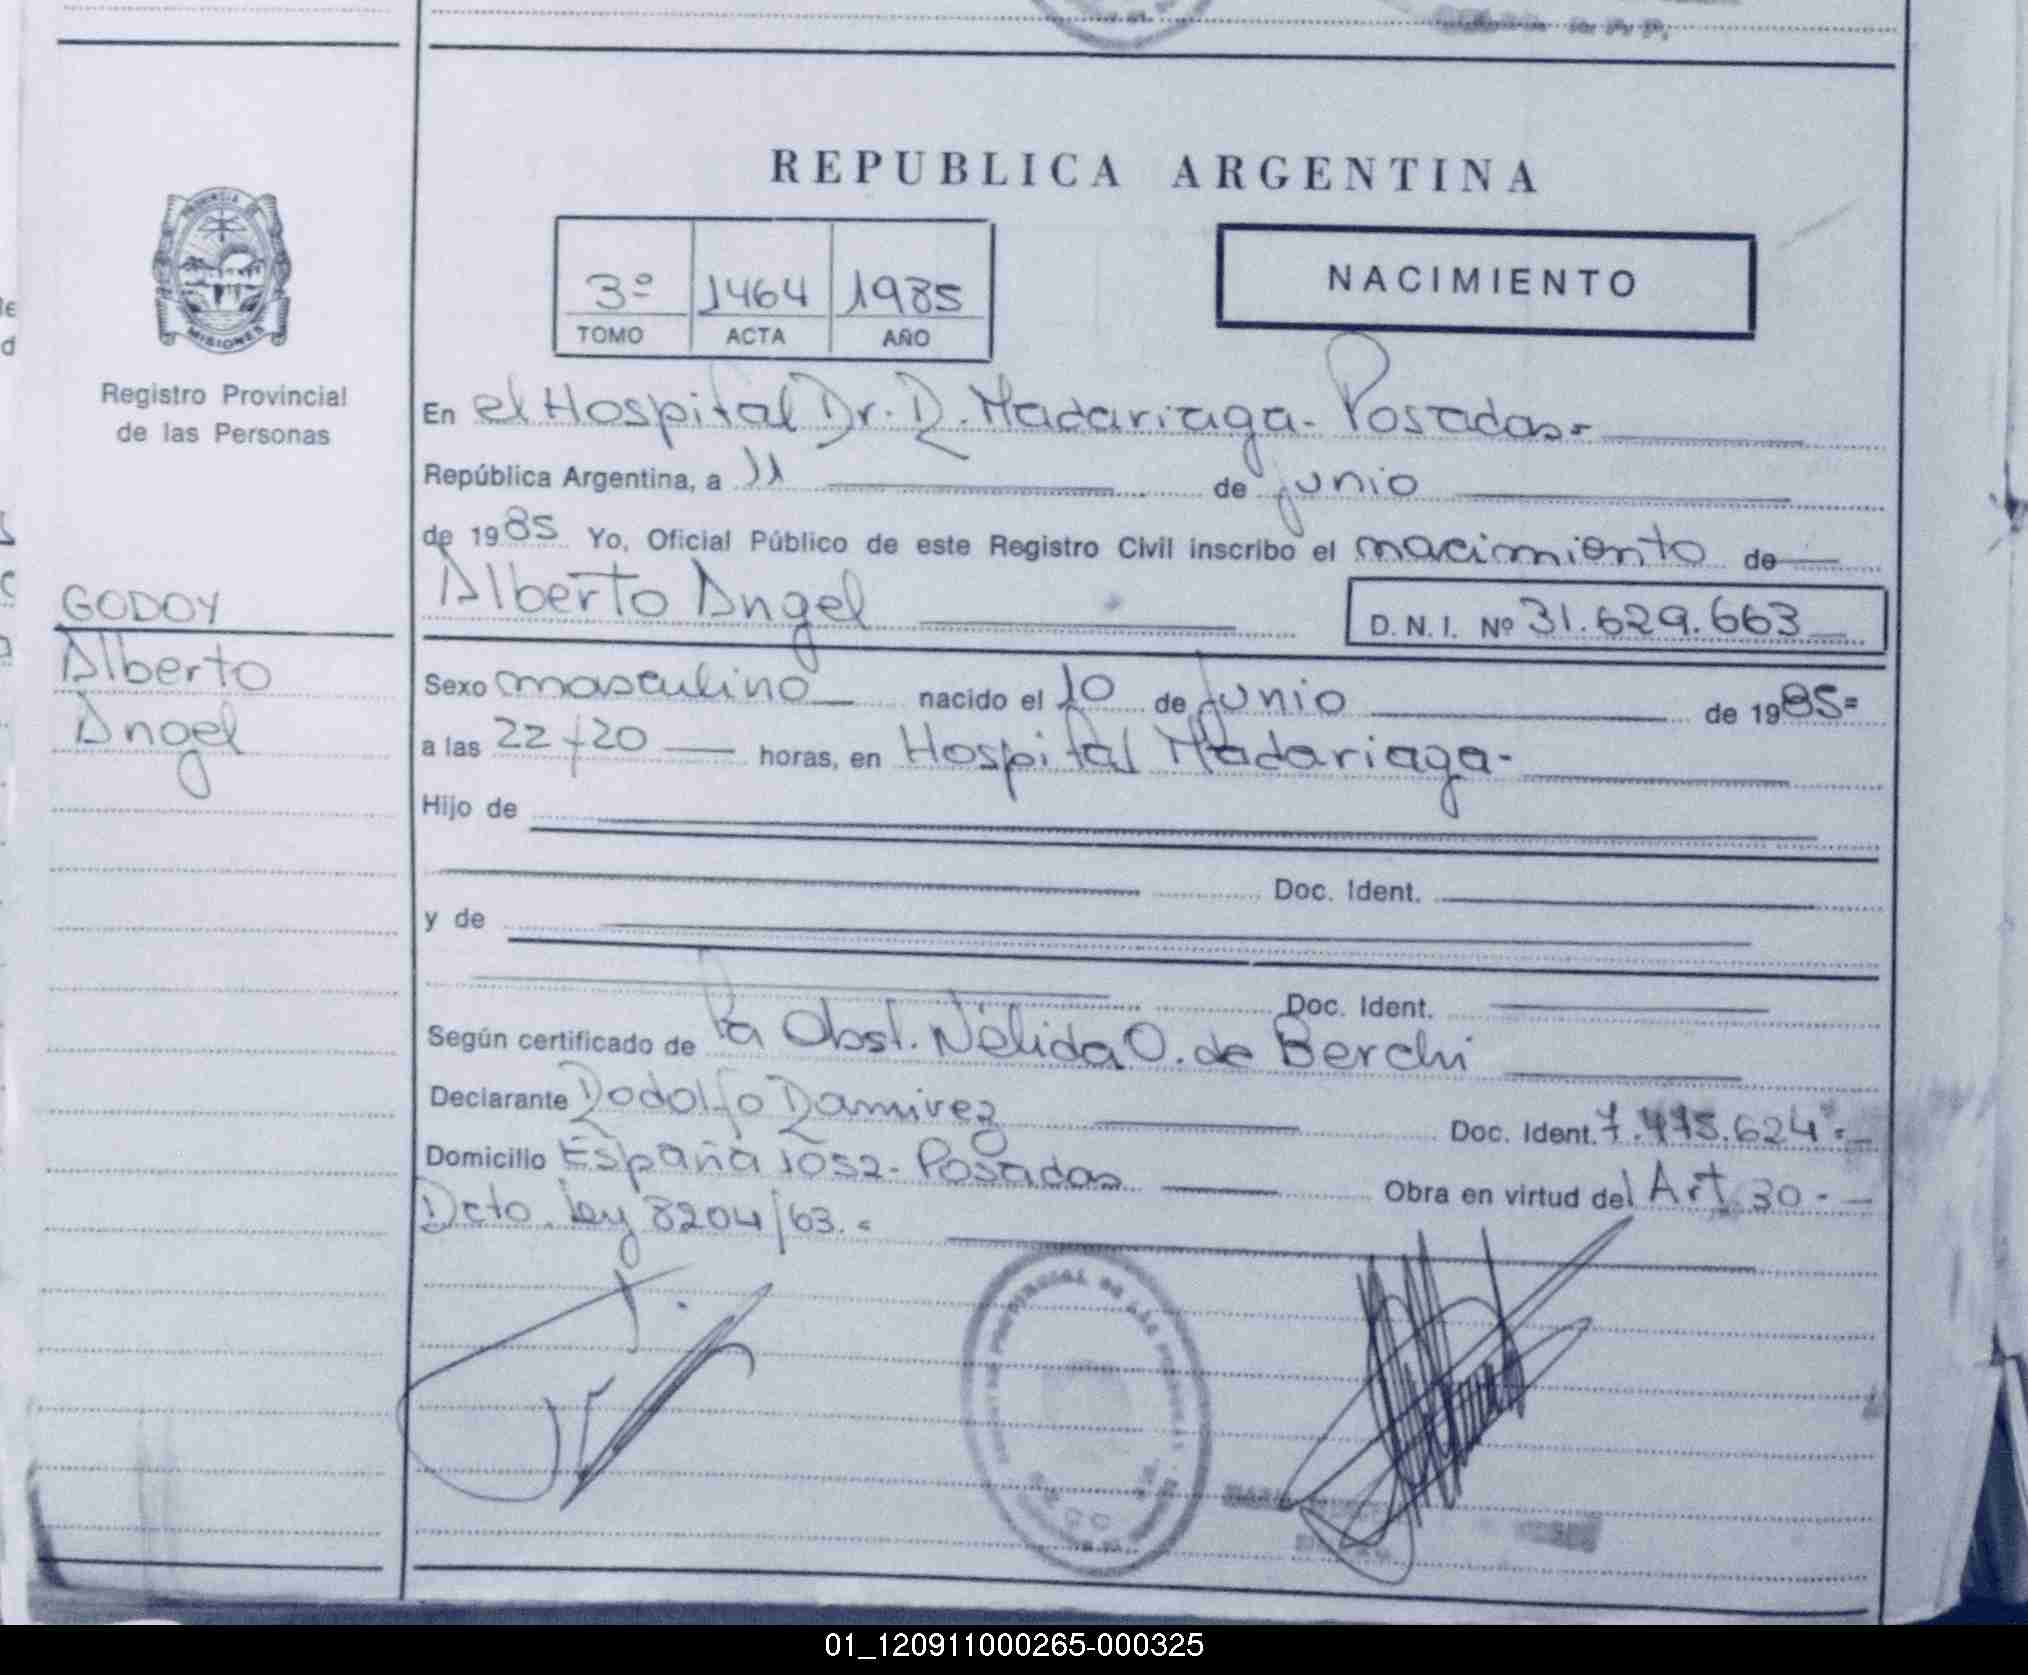 REPUBLICA ARGENTINA
PROVINCIA DE
MISIONES
Registro Provincial
de las Personas
3º 1464 1985
TOMO ACTA AÑO
NACIMIENTO
En el Hospital Dr. R. Madariaga - Posadas=
República Argentina, a 11 de junio
de 1985 Yo, Oficial Público de este Registro Civil inscribo el nacimiento de
Alberto Angel
D. N. I. Nº 31.629.663
GODOY
Alberto
Angel
Sexo masculino nacido el 10 de junio de 1985=
a las 22 y 20 horas, en Hospital Madariaga-
Hijo de
Doc. Ident.
y de
Doc. Ident.
Según certificado de la Obst. Nélida O. de Berchi
Declarante Rodolfo Ramirez Doc. Ident. 7.475.624=
Domicilio España 1052- Posadas Obra en virtud del Art. 30-
Dcto. ley 8204/63.=
01_120911000265-000325